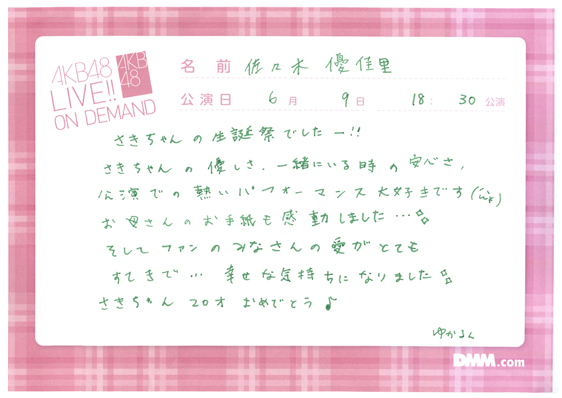 AKB48
LIVE!!
ON DEMAND
AKB
48
名前 佐々木 優佳里
公演日 6月 9日 18:30公演
さきちゃんの生誕祭でしたー!!
さきちゃんの優しさ、一緒にいる時の安心さ、
公演での熱いパフォーマンス大好きです
お母さんのお手紙も感動しました…
そしてファンのみなさんの愛がとても
すてきで… 幸せな気持ちになりました
さきちゃん 20才 おめでとう♪
ゆかるん
DMM.com